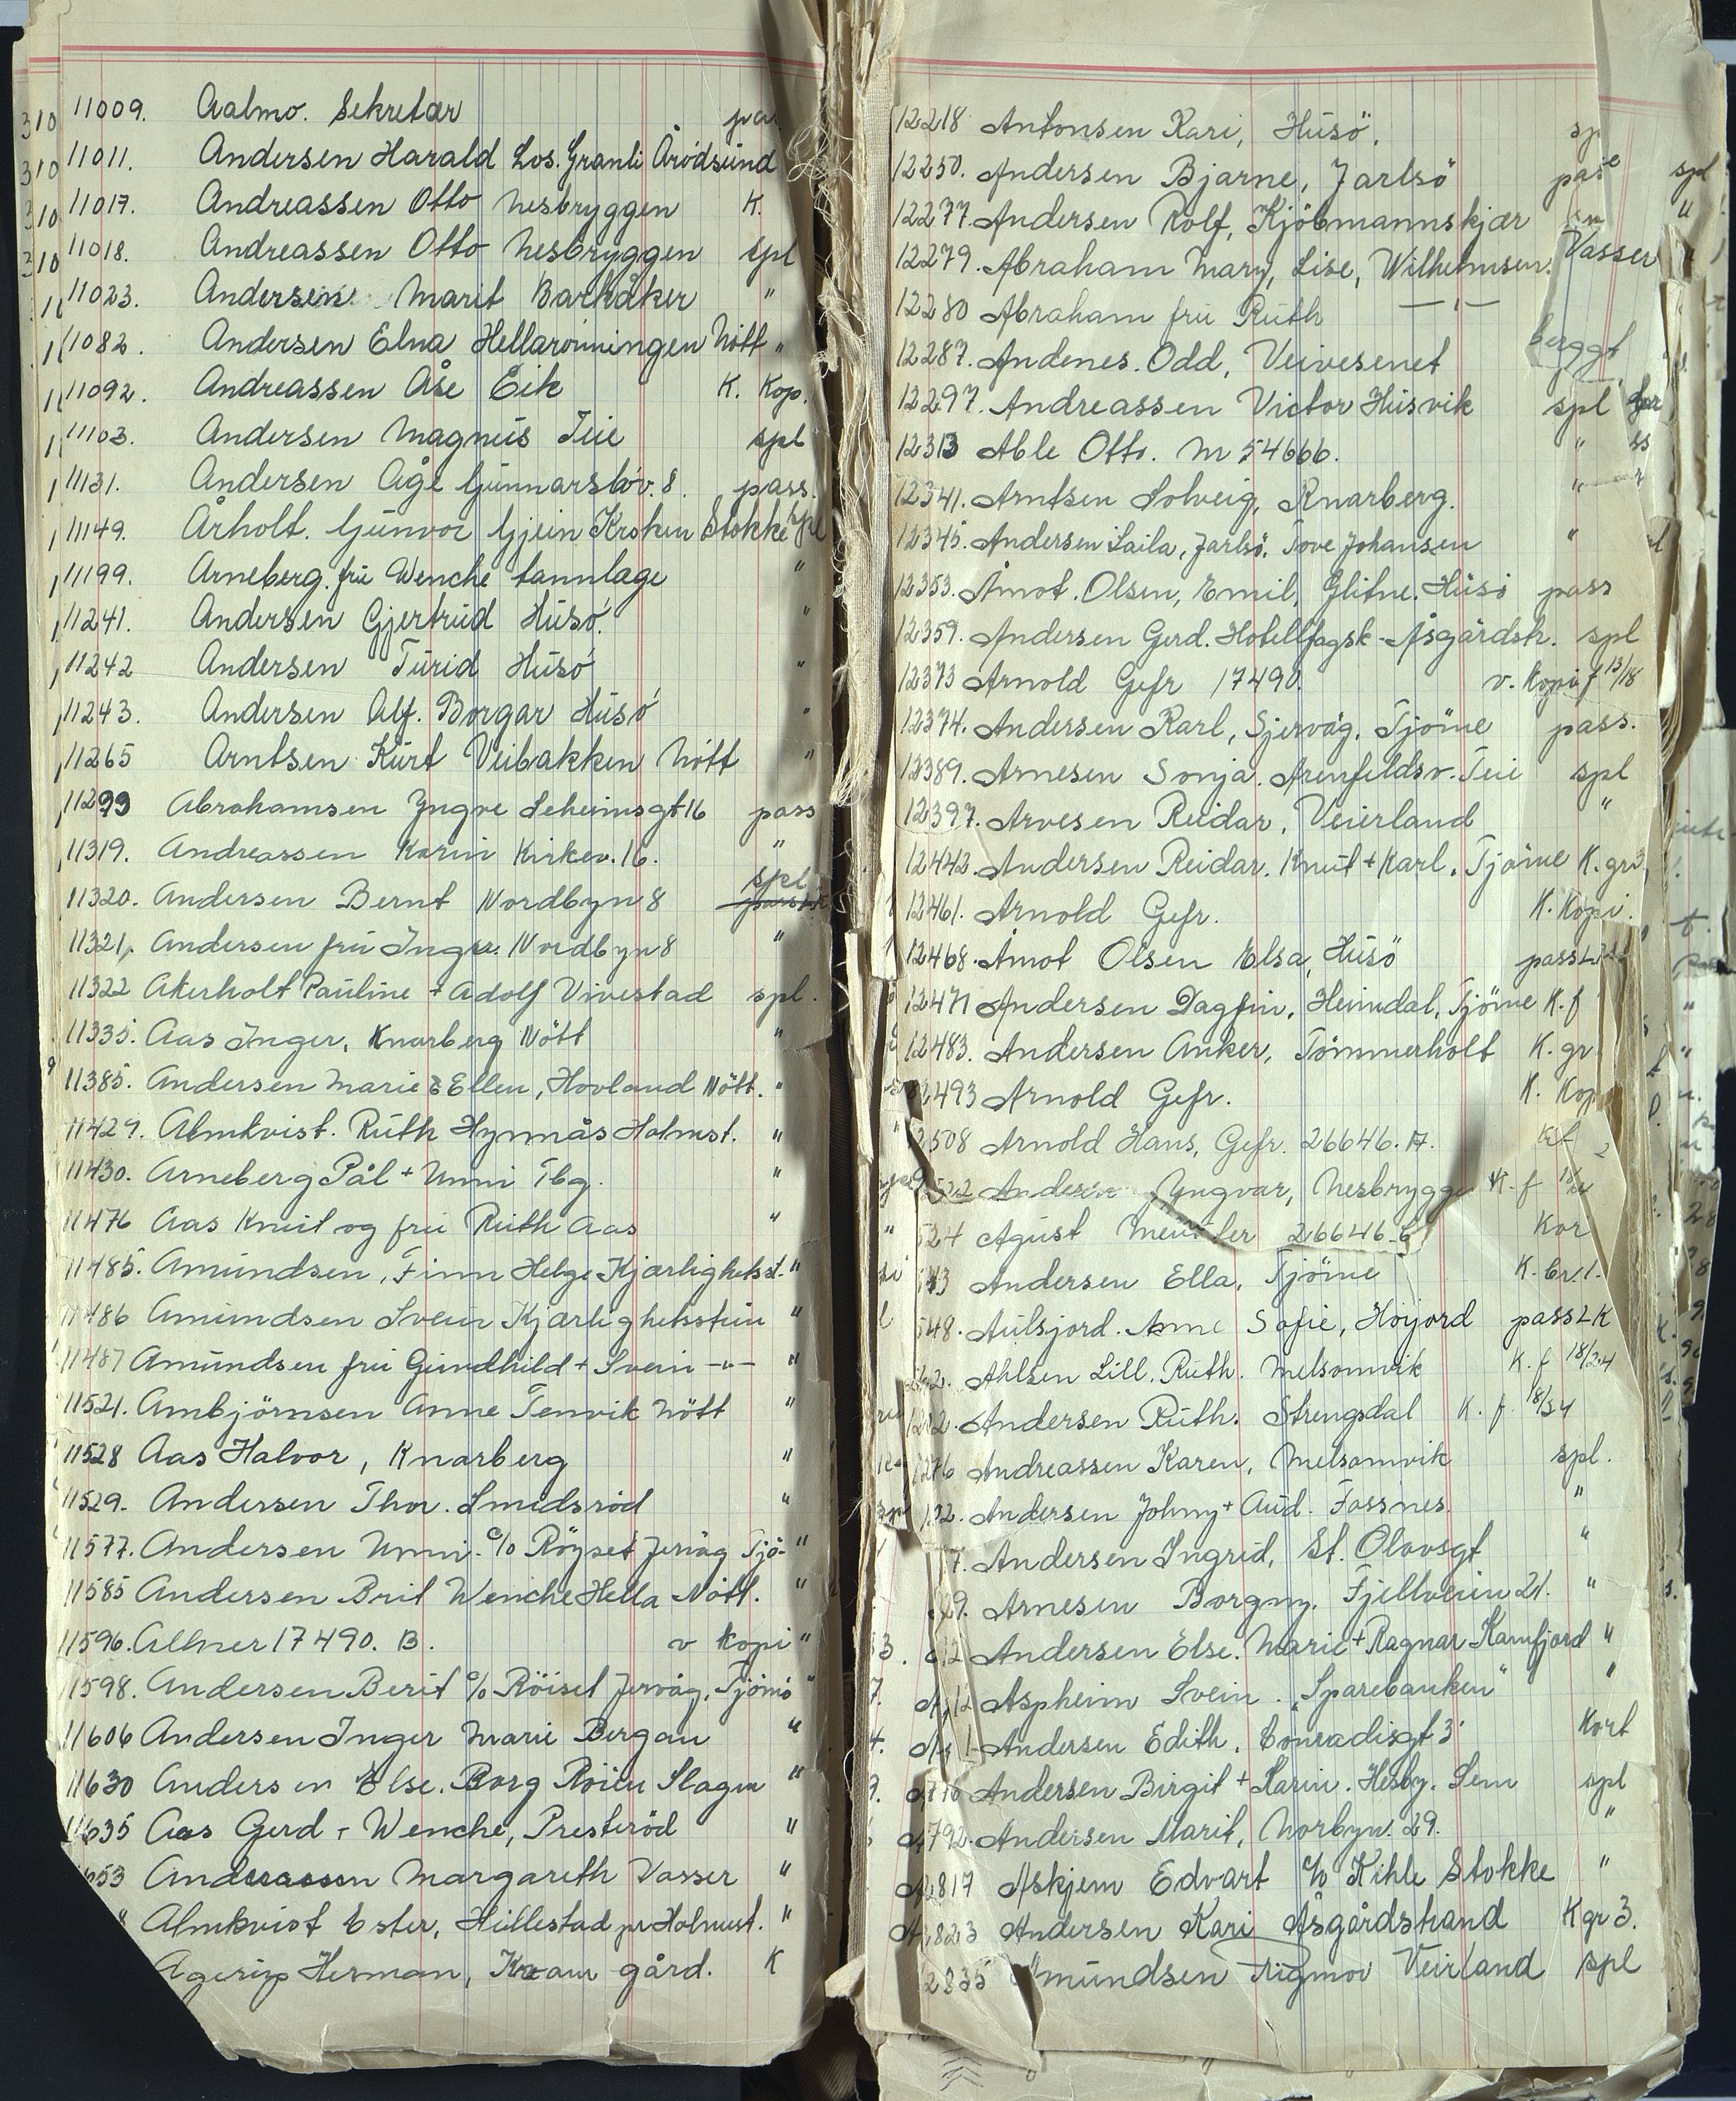 11009. Aalmo. Sekretær
11011. Andersen Harald Los. Granli Årödsund
11017. Andreassen Otto Nesbryggen K.
11018. Andreassen Otto Nesbryggen spl
11023. Andersen Marit Barkåker "
11082. Andersen Elna Hellarönningen Nött "
11092. Andreassen Åse Eik K. Kop.
11103. Andersen Magnus Teie spl
11131. Andersen Åge Gunnarsböv. 8. pass.
11149. Årholt. Gunvor Gjein Kroken Stokke spl
11199. Arneberg. fru Wenche tannlæge "
11241. Andersen Gjertrud Husö. "
11242 Andersen Turid Husö "
11243. Andersen Alf. Borgar Husö "
11265 Arntsen Kurt Veibakken Nött "
11299 Abrahamsen Yngve Leheimsgt 16 pass
11319. Andreassen Karin Kirkev. 16. "
11320. Andersen Bernt Nordbyn 8 spl
11321. Andersen fru Inger. Nordbyn 8 "
11322 Akerholt Pauline + Adolf Vivestad spl.
11335. Aas Inger, Knarberg Nött "
11385. Andersen Marie & Ellen, Hovland Nött. "
11429. Almkvist. Ruth Hynnås Holmst. "
11430. Arneberg Pål + Unni Tbg. "
11476 Aas Knut og fru Ruth Aas "
11485. Amundsen, Finn Helge Kjærlighetsst. "
11486 Amundsen Svein Kjærlighetsstein "
11487 Amundsen fru Gundhild + Svein —"— "
11521. Ambjörnsen Anne Tenvik Nött "
11528 Aas Halvor, Knarberg "
11529. Andersen Thor. Smidsröd "
11577. Andersen Unni. c/o Röyset Jervåg Tjö- "
11585 Andersen Brit Wenche Hella Nött. "
11596. Allner 17490. B. v Kopi "
11598. Andersen Berit c/o Röiset Jervåg, Tjömö "
11606 Andersen Inger Marie Bergan "
11630 Andersen Else. Borg Röien Slagen "
11635 Aas Gerd + Wenche, Presteröd "
653 Andreassen Margareth Vasser "
Almkvist Ester, Hillestad pr Holmest. "
Agerup Herman, Kvam gård. K
12218 Antonsen Kari, Husö. sp
12250. Andersen Bjarne, Jarlsö pass
12277. Andersen Rolf, Kjöbmannskjær
12279. Abraham Mary, Lise, Wilhelmsen. Vasser
12280 Abraham fru Ruth —"—
12287. Andenes. Odd, Veivesenet
12297. Andreassen Victor Husvik spl
12313 Able Otto. M 54666. "
12341. Arntsen Solveig, Knarberg. "
12345. Andersen Laila, Jarlsö. Tove Johansen "
12353. Åmot. Olsen, Emil, Glitne. Husö pass
12359. Andersen Gerd. Hotellfagsk - Åsgårdstr. spl
12373 Arnold Gefr 17490. v. Kopi f 13/18
12374. Andersen Karl, Sjervåg, Tjöme pass.
12389. Arnesen Sonja. Arenfeldsv. Teie spl
12397. Arvesen Reidar, Veierland "
12442. Andersen Reidar. Knut + Karl. Tjöme K. gr
12461. Arnold Gefr. K. Kopi.
12468. Åmot Olsen Elsa, Husö pass
12471 Andersen Dagfin, Heimdal, Tjöme K. f
12483. Andersen Anker, Tömmerholt K. gr
2493 Arnold Gefr. K. Kop
2508 Arnold Hans, Gefr. 26646. A. Kf
522 Andersen Yngvar, Nesbrygge K. f
524 Agust 26646-C Kor
543 Andersen Ella, Tjöme K. br. 1.
548. Aulsjord. Anne Sofie, Höijord pass 2 K
Ahlsen Lill. Ruth. Melsomvik K. f 18/24
Andersen Ruth. Strengsdal K. f. 18/24
Andreassen Karen, Melsomvik spl.
Andersen Johny + Aud. Fossnes. "
7. Andersen Ingrid, St. Olavsgt "
Arnesen Borgny. Fjellveien 21. "
Andersen Else. Marie + Ragnar Kamfjord "
Aspheim Svein. "Sparebanken" "
Andersen Edith. Conradisgt 3 Kort
Andersen Birgit + Karin. Hesby. Sem spl
792. Andersen Marit, Norbyn. 29. "
2817 Askjem Edvart c/o Kihle Stokke "
2823 Andersen Kari Åsgårdstrand K gr 3.
2835 Amundsen Rigmor Veirland spl